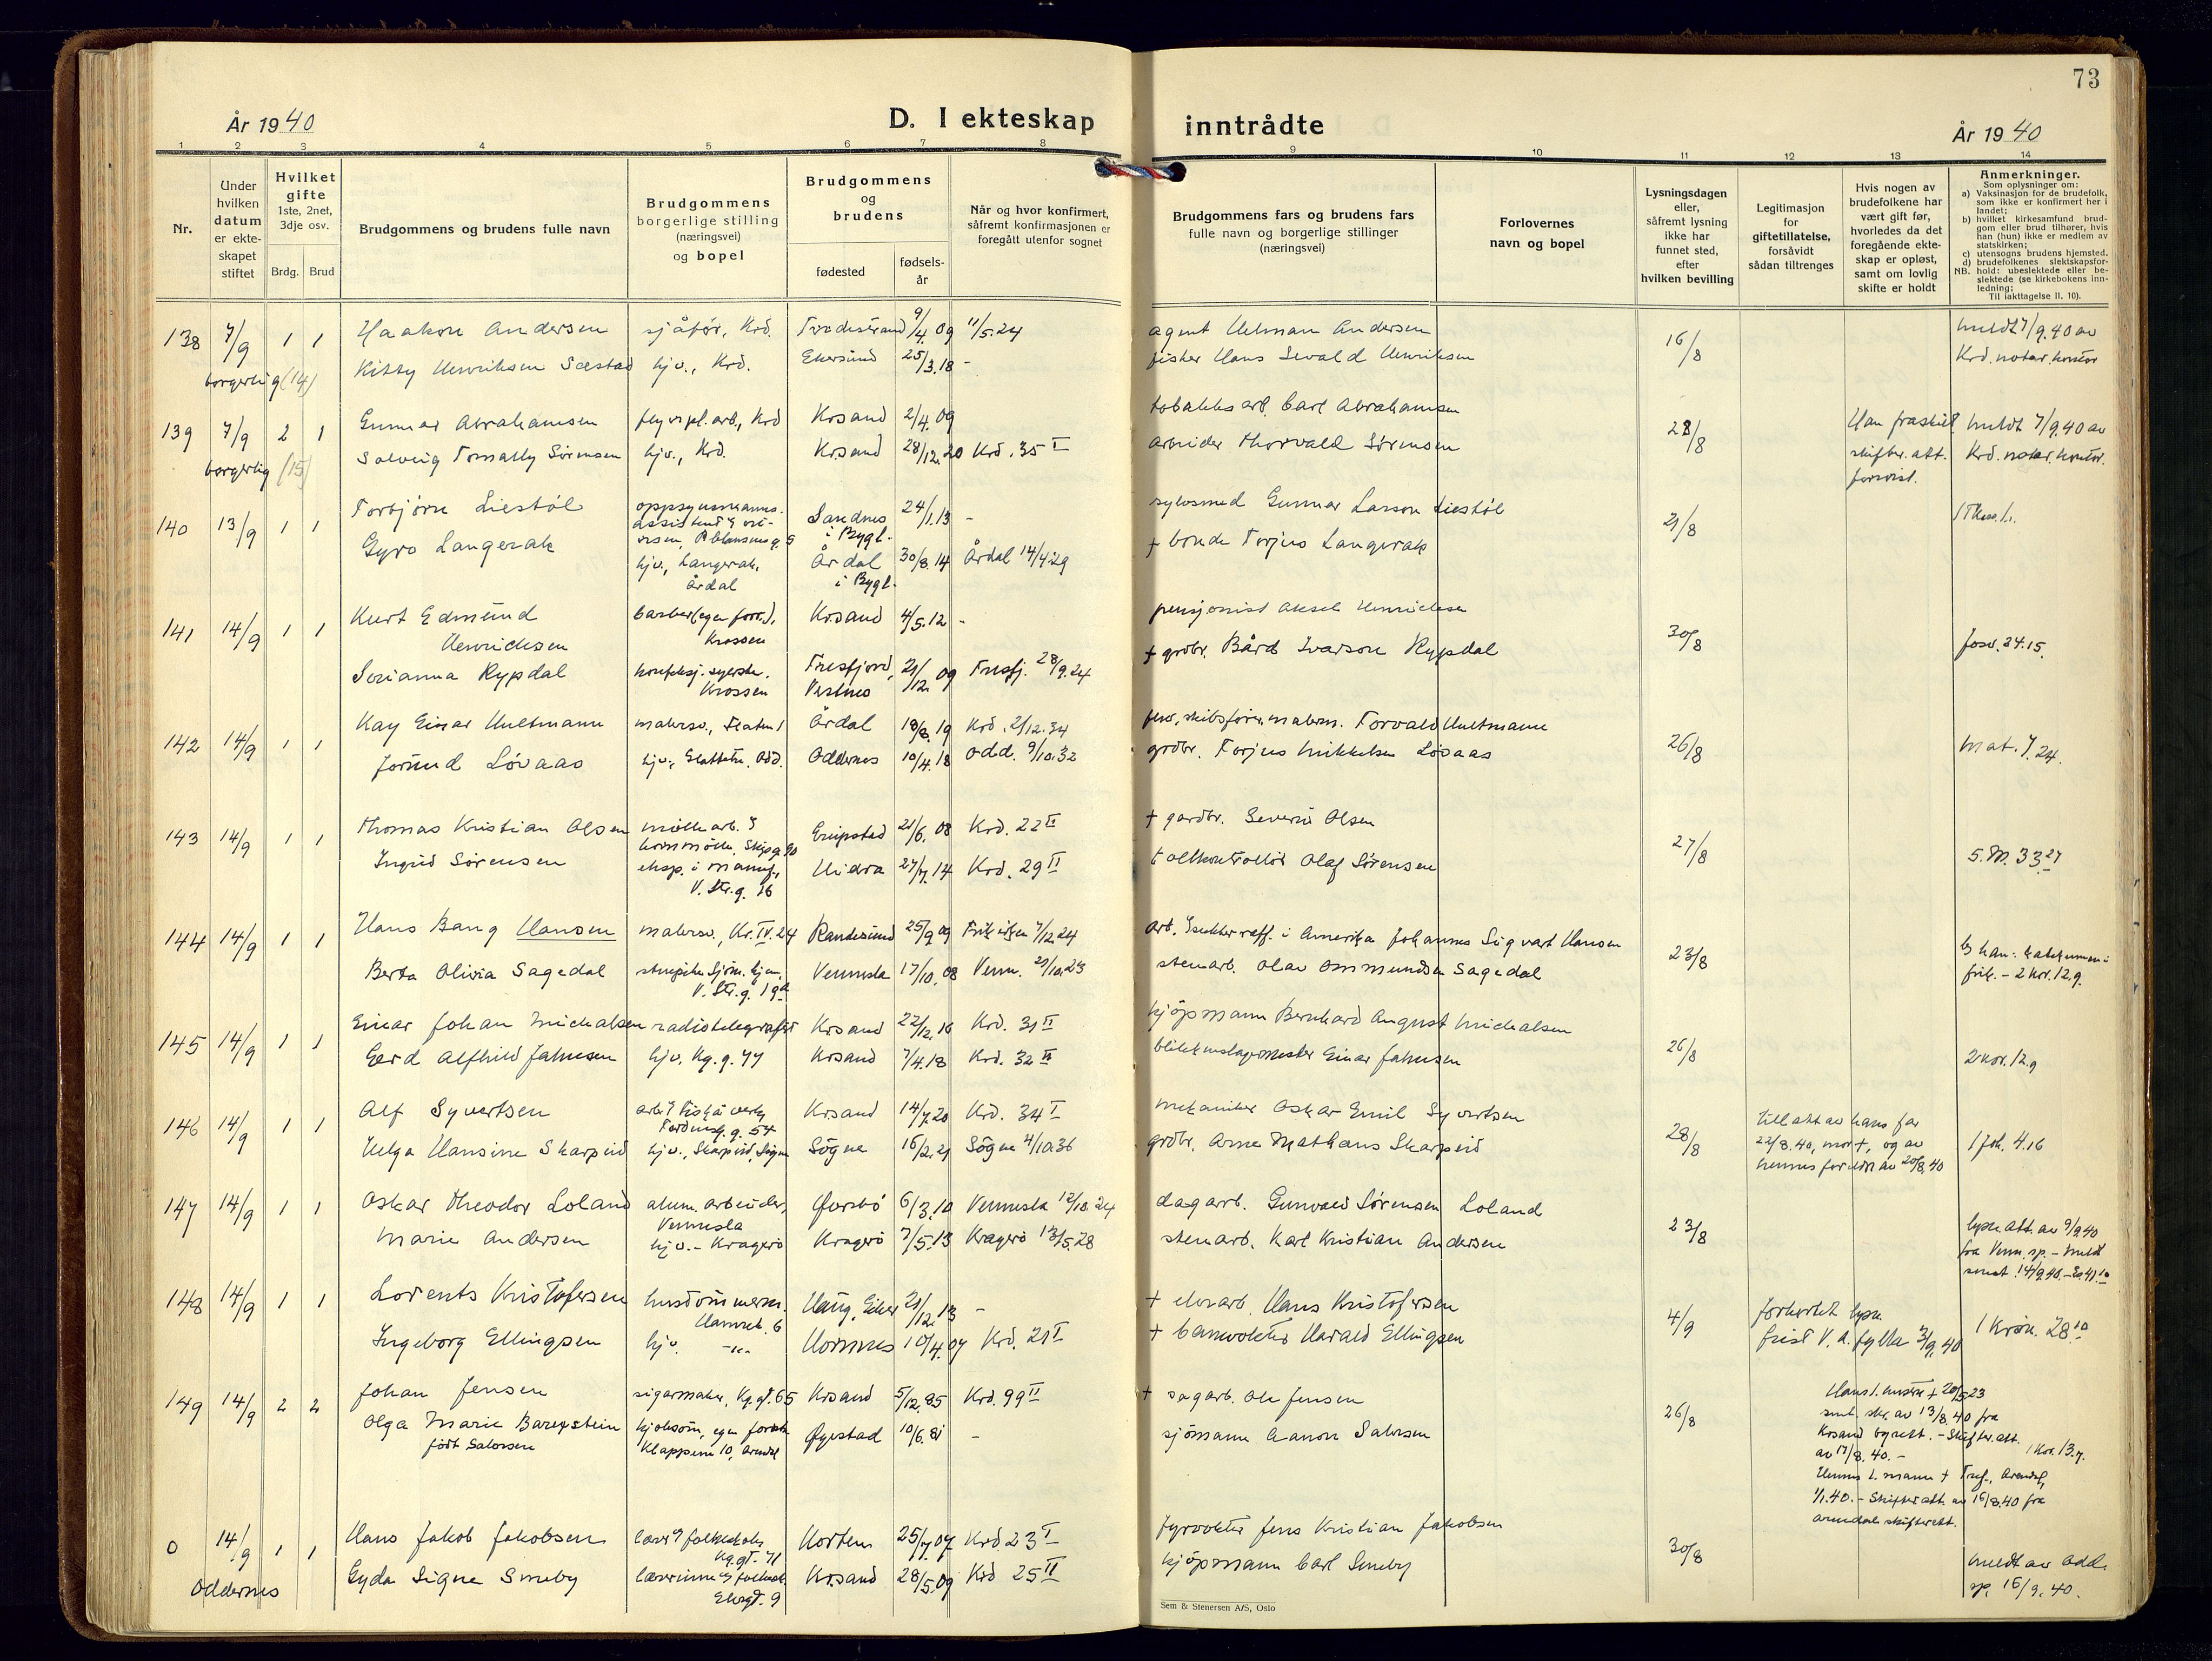 73
År 1940
D. I ekteskap
inntrådte
År 1940
1 2 3 4 5 6 7 8 9 10 11 12 13 14
Nr.
Under
hvilken
datum
er ekte-
skapet
stiftet
Hvilket
gifte
1ste, 2net,
3dje osv.
Brdg. Brud
Brudgommens og brudens fulle navn
Brudgommens
borgerlige stilling
(næringsvei)
og bopel
Brudgommens
og
brudens
fødested
fødsels-
år
Når og hvor konfirmert,
såfremt konfirmasjonen er
foregått utenfor sognet
Brudgommens fars og brudens fars
fulle navn og borgerlige stillinger
(næringsvei)
Forlovernes
navn og bopel
Lysningsdagen
eller,
såfremt lysning
ikke har
funnet sted,
efter
hvilken bevilling
Legitimasjon
for
giftetillatelse,
forsåvidt
sådan tiltrenges
Hvis nogen av
brudefolkene har
vært gift før,
hvorledes da det
foregående ekte-
skap er opløst,
samt om lovlig
skifte er holdt
Anmerkninger.
Som oplysninger om:
a) Vaksinasjon for de brudefolk,
som ikke er konfirmert her i
landet;
b) hvilket kirkesamfund brud-
gom eller brud tilhører, hvis
han (hun) ikke er medlem av
statskirken;
c) utensogns brudens hjemsted.
d) brudefolkenes slektskapsfor-
NB. hold: ubeslektede eller be-
slektede (se kirkebokens inn-
ledning;
Til iakttagelse II. 10).
138 7/9 1 1 Haakon Andersen sjåför, Krd. Tvedestrand 9/4 09 11/5.24 agent Helman Andersen 16/8 meldt 7/9.40 av
borgerlig (14) Kitty Henriksen Sæstad hjv., Krd. Ekersund 25/3.18 - fisker Hans Sevald Henriksen Krd. notar. kontor
139 7/9 2 1 Gunnar Abrahamsen Krd Krsand 2/4.09 tobakksarb. Carl Abrahamsen 28/8 Han fraskilt. meldt 7/9.40 av
borgerlig (15) Solveig Tomally Sörensen hjv., Krd. Krsand 28/12.20 Krd. 35 I arbeider Thorvald Sörensen skifter. att. Krd. notar. kontor.
forevist.
140 13/9 1 1 Torbjörn Liestöl oppsynsmanns- Sandnes 24/1.13 - sylvsmed Gunnar Larson Liestöl 21/8
assistent
i Bygl.
Gyro Langerak hjv., Langerak, Årdal 30/8.14 Årdal 14/4 29 + bonde Torjus Langerak
Årdal i Bygl.
141 14/9 1 1 Kurt Edmund barber (egen forr.), Krsand 4/5.12 - pensjonist Aksel Henrichsen 30/8 Josv. 24.15.
Henrichsen Krossen
Serianna Rypdal konfeksj. syerske. Tresfjord, 21/12 09 Tresfj. 28/9.24 + grdbr. Bård Ivarson Rypdal
Krossen Vestnes
142 14/9 1 1 Kay Einar Hultmann malersv., Årdal 18/8.19 Krd. 2/12.34 Torvald Hultmann 26/8 Mat. 7.24.
Jorund Lövaas hjv., Slettem. Odd. Oddernes 10/4.18 Odd. 9/10.32 grdbr. Torjus Mikkelsen Lövaas
143 14/9 1 1 Thomas Kristian Olsen möllearb. Eripstad 21/6. 08 Krd. 22 II + gardbr. Severin Olsen 27/8 5. M. 33.27
Ingrid Sörensen eksp. i manuf., Hidra 27/7.14 Krd. 29 II tollkontrollör Olaf Sörensen
V. Str.g. 16
144 14/9 1 1 Hans Bang Hansen malersv., Kr. IV. 24 Randesund 25/9 09 Frik. 7/12 24 arb. i Amerika Johannes Sigvart Hansen 23/8
Berta Olivia Sagedal Vennesla 17/10. 08 Venn. 21/10.23 stenarb. Olav Ommundsen Sagedal frik. - 2 kor. 12.9.
V. Str.g. 19
145 14/9 1 1 Einar Johan Mickalsen radiotelegrafist Krsand 22/12.16 Krd. 31 II kjöpmann Bernhard August Mickalsen 26/8 2 kor. 12.9
Gerd Alfhild Jahnsen hjv. Kg.g. 77 Krsand 7/4.18 Krd. 32 II blikkenslagermester Einar Jahnsen
146 14/9 1 1 Alf Syvertsen Krsand 14/7.20 Krd. 34 I mekaniker Oskar Emil Syvertsen 28/8 till. att av hans far 1 Joh. 4.16
22/8.40, mor +, og av
Helga Hansine Skarpeid hjv., Skarpeid, Sögne Sögne 16/2.21 Sögne 4/10 36 grdbr. Arne Mathæus Skarpeid hennes foreldre av 20/8.40
147 14/9 1 1 Oskar Theodor Loland alum. arbeider, Övrebö 6/3.10 Vennesla 12/10.24 dagarb. Gunvald Sörensen Loland 23/8 lysn. att. av 9/9.40
Vennesla
Marie Andersen hjv. - Kragerö Kragerö 7/5.13 Kragerö 13/5.28 stenarb. Karl Kristian Andersen fra Venn. sp. - meldt
148 14/9 1 1 Lorents Kristofersen hustömmerm. Haug, Eiker 21/12.13 - + elvearb. Hans Kristofersen 4/9 forkortet lysn. 1 Krön. 28.10
Hannev. 6
Ingeborg Ellingsen hjv. -"- Hornnes 10/4.07 Krd. 21 I + banevokter Harald Ellingsen frist V. A. fylke 3/9.40
149 14/9 2 2 Johan Jensen sigarmaker, Kg.gt. 65 Krsand 5/12.85 Krd. 99 II + sagarb. Ole Jensen 26/8 Hans 1. hustru + 20/5 23
Olga Marie Barexstein kjolesöm, egen forretn. Öyestad 10/6.81 - sjömann Aanon Salvesen smb. skr. av 13/8.40 fra
födt Salvesen Klappene 10, Arendal Krsand byrett. - Skifter. att.
av 17/8.40. - 1 Kor. 13.7.
Hennes 1. mann + Tref., Arendal,
1/1.40. - Skifter. att. av 16/8.40 fra
Arendals skifterett.
0 14/9 1 1 Hans Jakob Jakobsen lærer folkeskolen Horten 25/7.07 Krd 23 I fyrvokter Jens Kristian Jakobsen 30/8 meldt av Odd.
Kg.gt. 71
Oddernes Gyda Signe Smeby lærerinne folkesk. Krsand 28/5.09 Krd 25 II kjöpmann Carl Smeby sp. 16/9.40.
Elvegt. 9
Sem & Stenersen A/S, Oslo